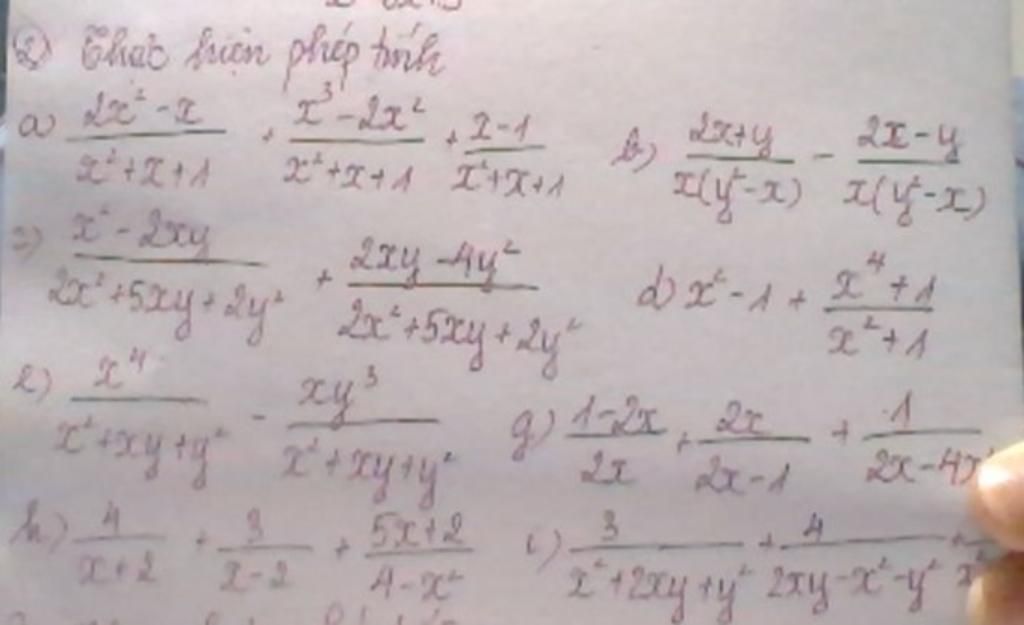 2) Thực hiện phép tính
a) (2x² - x)/(x² + x + 1) + (x³ - 2x²)/(x² + x + 1) + (x - 1)/(x² + x + 1) b) (2x + y)/(x(y² - x)) - (2x - y)/(x(y² - x))
c) (x² - 2xy)/(2x² + 5xy + 2y²) + (2xy - 4y²)/(2x² + 5xy + 2y²) d) x² - 1 + (x⁴ + 1)/(x² + 1)
e) x⁴/(x² + xy + y²) - xy³/(x² + xy + y²) g) (1 - 2x)/2x + 2x/(2x - 1) + 1/(2x - 4x²)
h) 4/(x + 2) + 3/(x - 2) + (5x + 2)/(4 - x²) i) 3/(x² + 2xy + y²) + 4/(2xy - x² - y²) +